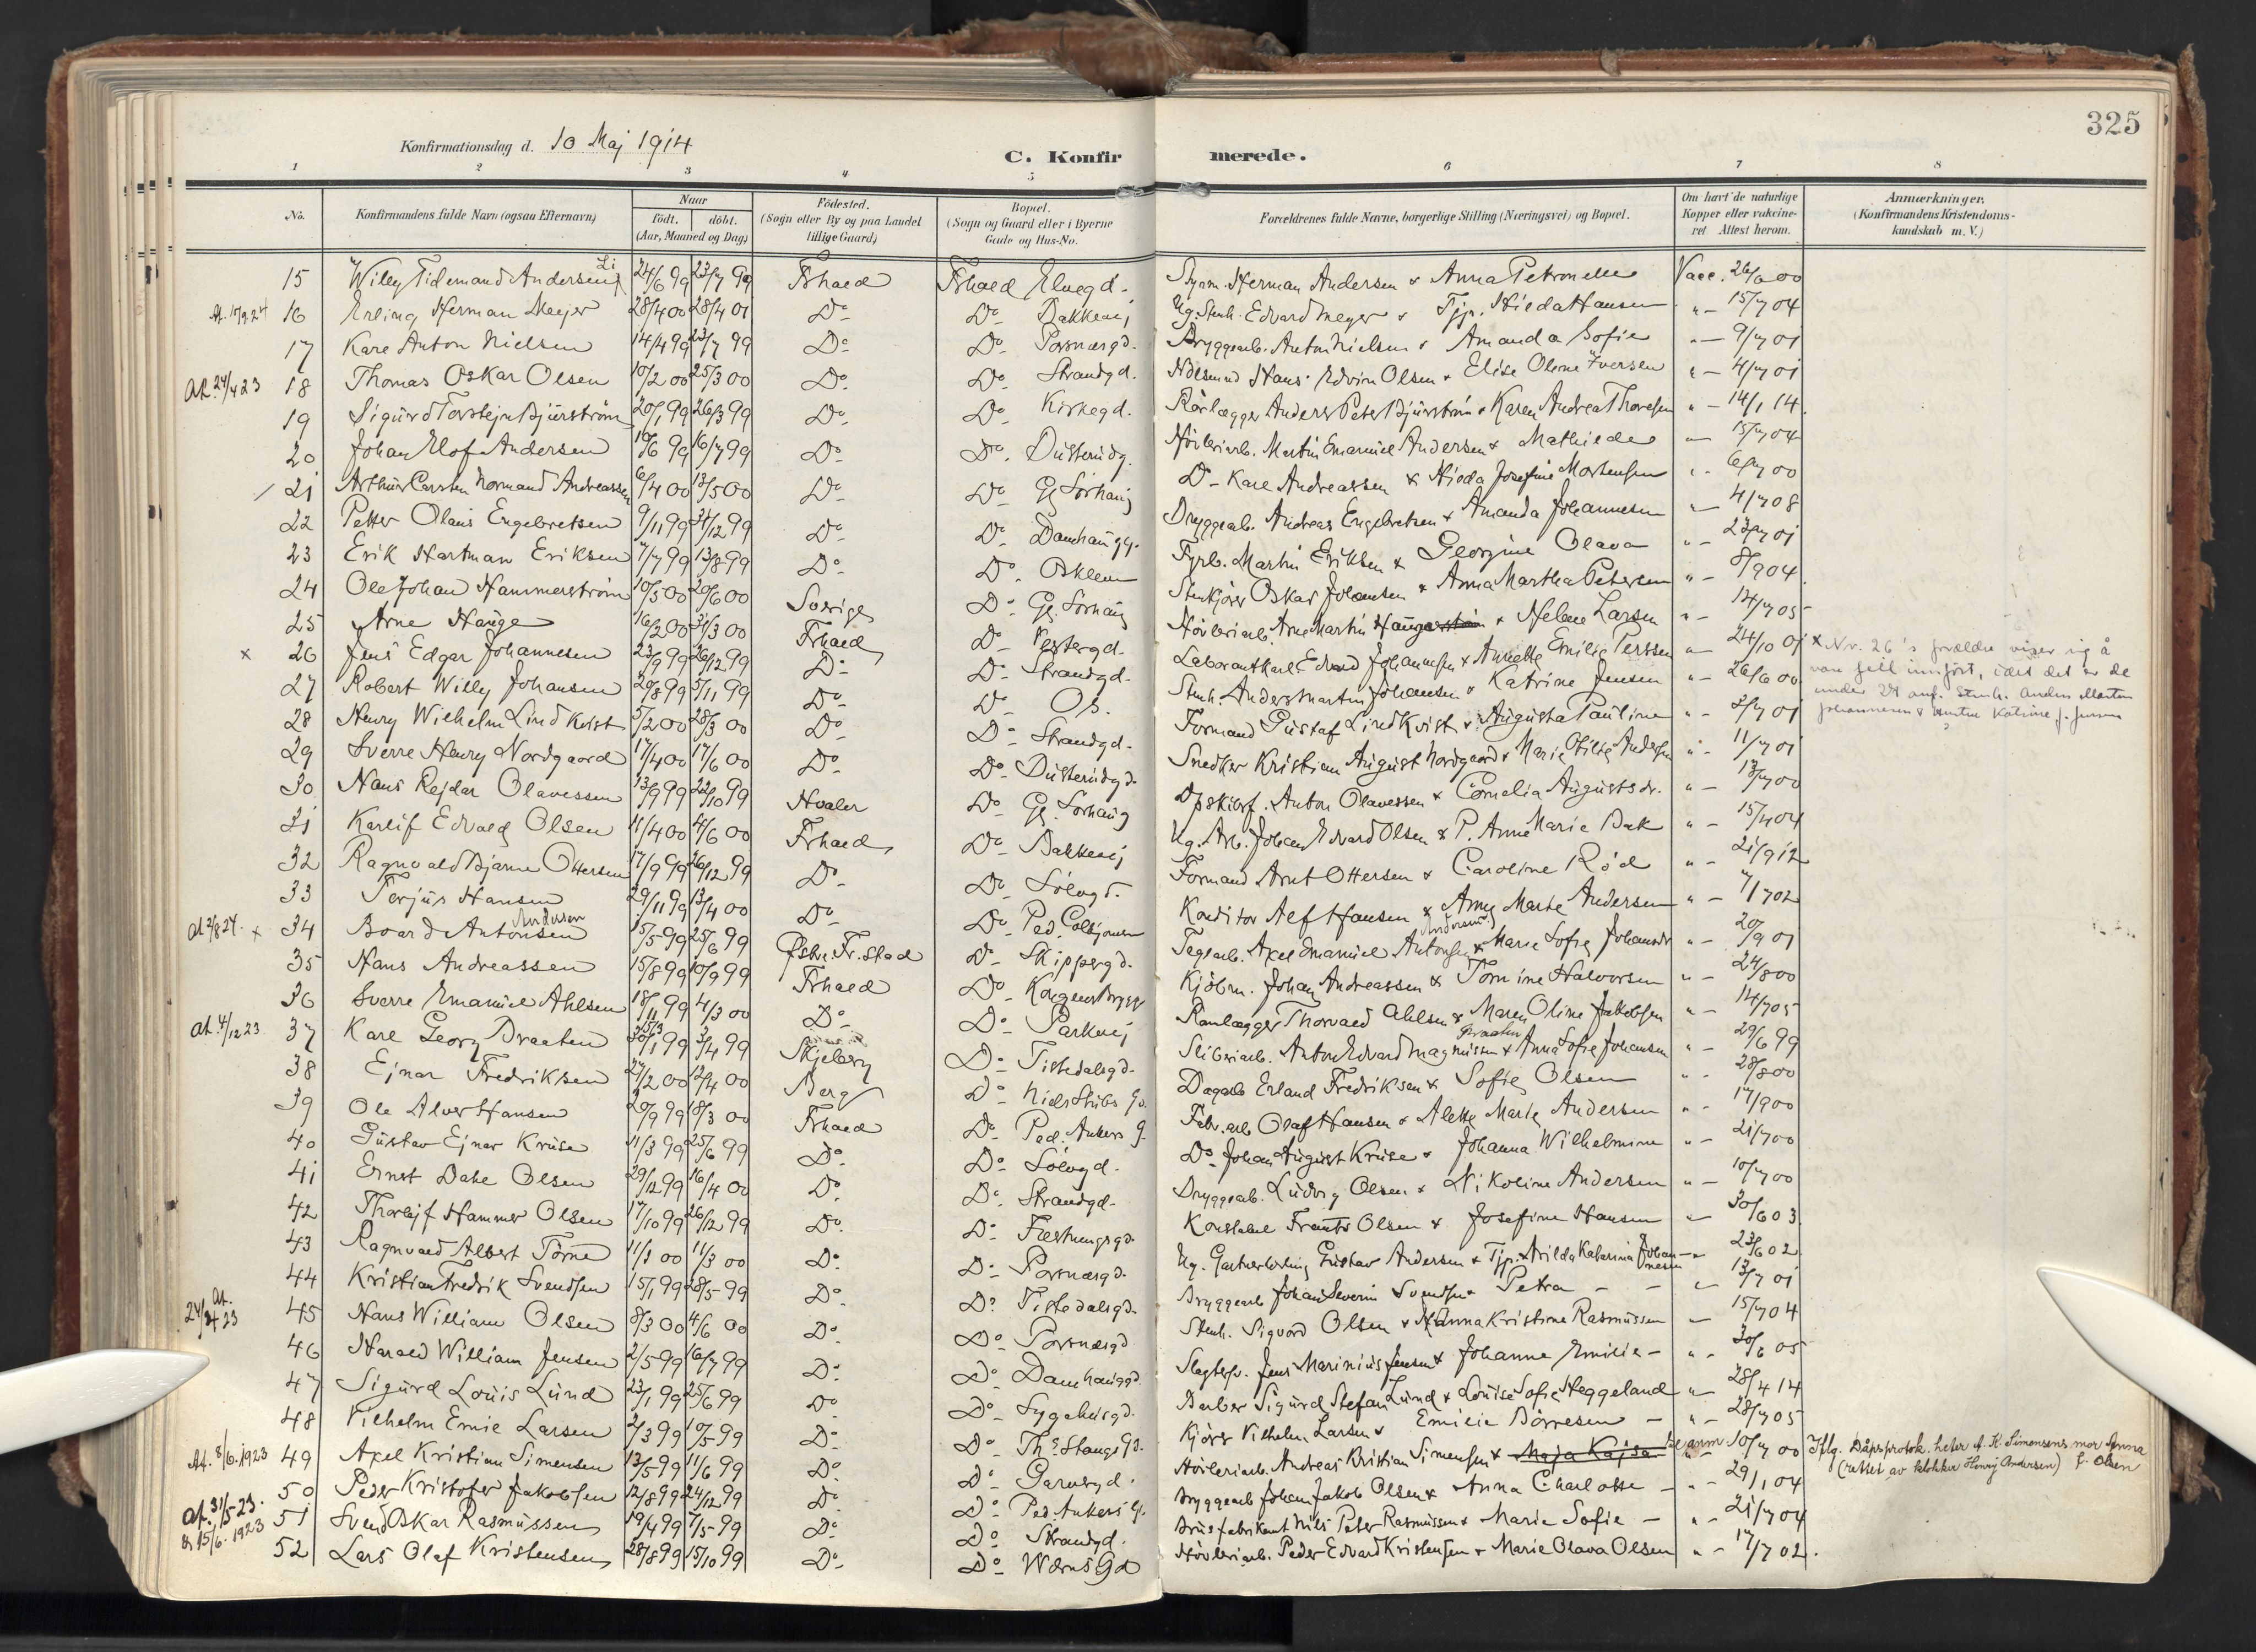 325
Konfirmationsdag d. 10 Maj 1914
C. Konfirmerede.
1 2 3 4 5 6 7 8
No. Konfirmandens fulde Navn (ogsaa Efternavn) Naar født. døbt. (Aar, Maaned og Dag) Födested. (Sogn eller By og paa Landet tillige Gaard) Bopæl. (Sogn og Gaard eller i Byerne Gade og Hus-No. Forældrenes fulde Navne, borgerlige Stilling (Næringsvei) og Bopæl. Om havt de naturlige Kopper eller vakcineret Attest herom. Anmærkninger, (Konfirmandens Kristendomskundskab m. V.)
15 Willy Tidemand Andersen 24/6 99 23/7 99 Frhald Frhald Elvegd. Herman Andersen & Anna Petronelle Vacc. 26/6 00
16 Erling Herman Meyer 28/4 00 28/4 01 Do Do Bakkevej Ug. Stenh. Edvard Meyer & Tjp. Hilda Hansen " - 15/7 04
17 Kare Anton Nielsen 14/4 99 23/7 99 Do Do Porsnæsgd. Bryggearb. Anton Nielsen & Amanda Sofie " - 9/7 01
At. 24/4 23 18 Thomas Oskar Olsen 10/2 00 25/3 00 Do Do Strandgd. Hans Edvin Olsen & Elise Oline Iversen " - 4/7 01
19 Sigurd Torstejn Bjürström 20/1 99 26/3 99 Do Do Kirkegd. Rörlægger Anders Peter Bjürström & Karen Andrea Thoresen " - 14/1 14
20 Johan Elof Andersen 10/6 99 16/7 99 Do Do Høvleriarb. Martin Emanuel Andersen & Mathilde " - 15/7 04
21 Arthur Carsten Normand Andreassen 6/4 00 13/5 00 Do Do Gl. Sorhaug Do Karl Andreassen & Hilda Josefine Mortensen " - 6/7 00
22 Petter Olaus Engebretsen 9/11 99 31/12 99 Do Do Damhaugg. Bryggearb. Andreas Engebretsen & Amanda Johannesen " - 4/7 08
23 Erik Hartman Eriksen 7/7 99 13/8 99 Do Do Oskleven Fyrb. Martin Eriksen & Georgine Olava " - 23/7 01
24 Ole Johan Hammerström 10/5 00 20/6 00 Sverige Do Gl. Sorhaug Stenkjører Oskar Johansen & Anna Martha Petersen " - 8/9 04
25 Arne Hauge 16/2 00 31/3 00 Frhald Do Vestergd. Høvleriarb. Arne Martin Hauge & Helene Larsen " - 14/7 05
x 26 Jens Edgar Johannesen 23/9 99 26/12 99 Do Do Strandgd. Laborantkarl Edvard Johannesen & Annette Emilie Perssen " - 24/10 01 x Nr. 26's forældre viser sig å
27 Robert Willy Johansen 20/8 99 5/11 99 Do Do Os. Stenh. Anders Martin Johansen & Katrine Jensen " - 26/6 00 være feil innført, idet det er de
28 Henry Wilhelm Lindkvist 5/2 00 28/3 00 Do Do Strandgd. Formand Gustaf Lindkvist & Augusta Pauline " - 2/7 01 under 27 anf. Stenh. Anders Martin
29 Sverre Henry Nordgaard 17/4 00 17/6 00 Do Do Snedker Kristian August Nordgaard & Marie Otilie Andersen " - 11/7 01
30 Hans Rejdar Olavessen 13/9 99 22/10 99 Hvaler Do Gl. Sorhaug Opskibsf. Anton Olavessen & Cornelia Augustsdr. " - 13/7 00
31 Karlif Edvald Olsen 11/4 00 4/6 00 Frhald Do Bakkevej Ug. Arb. Johan Edvard Olsen & P. Anne Marie Bak " - 15/4 04
32 Ragnvald Bjarne Ottersen 17/9 99 26/12 99 Do Do Sölvgd. Formand Arnt Ottersen & Caroline Röd " - 21/9 12
33 Torjus Hansen 29/11 99 13/4 00 Do Do Ped. Colbjørnsen Konditor Alf Hansen & Amy Marie Andersen " - 7/7 02
At 2/8 24. x 34 Board Antonsen Andersen 15/5 99 25/6 99 Østre Fr.stad Do Skippergd. Teglarb. Axel Emanuel Antonsen & Marie Sofie Johansdr " - 20/9 01
35 Hans Andreassen 15/8 99 10/9 99 Frhald Do Kongens Brygge Kjøbm. Johan Andreassen & Tomine Halvorsen " - 24/8 00
36 Sverre Emanuel Ahlsen 18/11 99 4/3 00 Do Do Parkvej Banlægger Thorvald Ahlsen & Maren Oline Jakobsen " - 14/7 05
At. 4/12 23. 37 Karl Georg Braaten 30/1 99 3/4 99 Skjeberg Do Tistedalsgd. Sliberiarb. Anton Edvard Magnussen Braaten & Anna Sofie Johansen " - 29/6 99
38 Ejnar Fredriksen 27/2 00 12/4 00 Berg Do Niels Stubs Gd. Dagarb Erland Fredriksen & Sofie Olsen " - 28/8 00
39 Ole Alver Hansen 20/9 99 18/3 00 Frhald Do Ped. Ankers G. Fabr.arb Olaf Hansen & Alette Marie Andersen " - 17/9 00
40 Gustav Ejnar Kruse 11/3 99 25/6 99 Do Do Sölvgd. Do Johan August Kruse & Johanna Wilhelmine " - 21/7 00
41 Ernst Dahl Olsen 29/12 99 16/4 00 Do Do Strandgd. Bryggearb. Ludvig Olsen & Nikoline Andersen " - 10/7 00
42 Thorlejf Hammer Olsen 17/10 99 26/12 99 Do Do Fæstningsgd. Konstabel Frants Olsen & Josefine Hansen " - 30/6 03
43 Ragnvald Albert Törne 11/3 00 11/3 00 Do Do Porsnæsgd. Ug. Gartnerlærling Gustav Andersen & Tjp. Arilda Katarina Johannesen " - 23/6 02
44 Kristian Fredrik Svendsen 15/1 99 28/5 99 Do Do Tistedalsgd. Bryggearb Johan Severin Svendsen & Petra " - 13/7 01
At. 45 Hans William Olsen 8/3 00 4/6 00 Do Do Porsnæsgd Stenh. Sigvard Olsen & Hanna Kristine Rasmussen " - 15/7 04
46 Harald William Jensen 2/5 99 16/7 99 Do Do Damhauggd. Slagterf. Jens Marinius Jensen & Johanne Emilie " - 30/6 05
47 Sigurd Louis Lund 23/1 99 25/6 99 Do Do Sygehusgd. Barber Sigurd Stefan Lund & Louise Sofie Heggeland " - 28/4 14
48 Vilhelm Emil Larsen 2/3 99 10/5 99 Do Do Ths Stangs Gd. Kjører Vilhelm Larsen & Emilie Börresen " - 28/7 05
At. 8/6.1923 49 Axel Kristian Simensen 13/5 99 11/6 99 Do Do Garvergd. Høvleriarb. Andreas Kristian Simensen & Maja Kajsa se anm " 10/7 00 Iflg. Dåpsprotok. heter A. K. Simensens mor Anna
50 Peder Kristofer Jakobsen 12/8 99 24/12 99 Do Do Ped. Ankers G. Bryggearb Johan Jakob Olsen & Anna Charlotte " - 29/1 04 (rettet av klokker Henry Andersen) f. Olsen
At. 31/5-23. 51 Svend Oskar Rasmussen 19/4 99 7/5 99 Do Do Strandgd. Brusfabrikant Nils Peter Rasmussen & Marie Sofie " - 21/7 04
& 15/6. 1923 52 Lars Olaf Kristensen 28/8 99 15/10 99 Do Do Wærns Gd Høvleriarb. Peder Edvard Kristensen & Marie Olava Olsen " - 17/7 02.